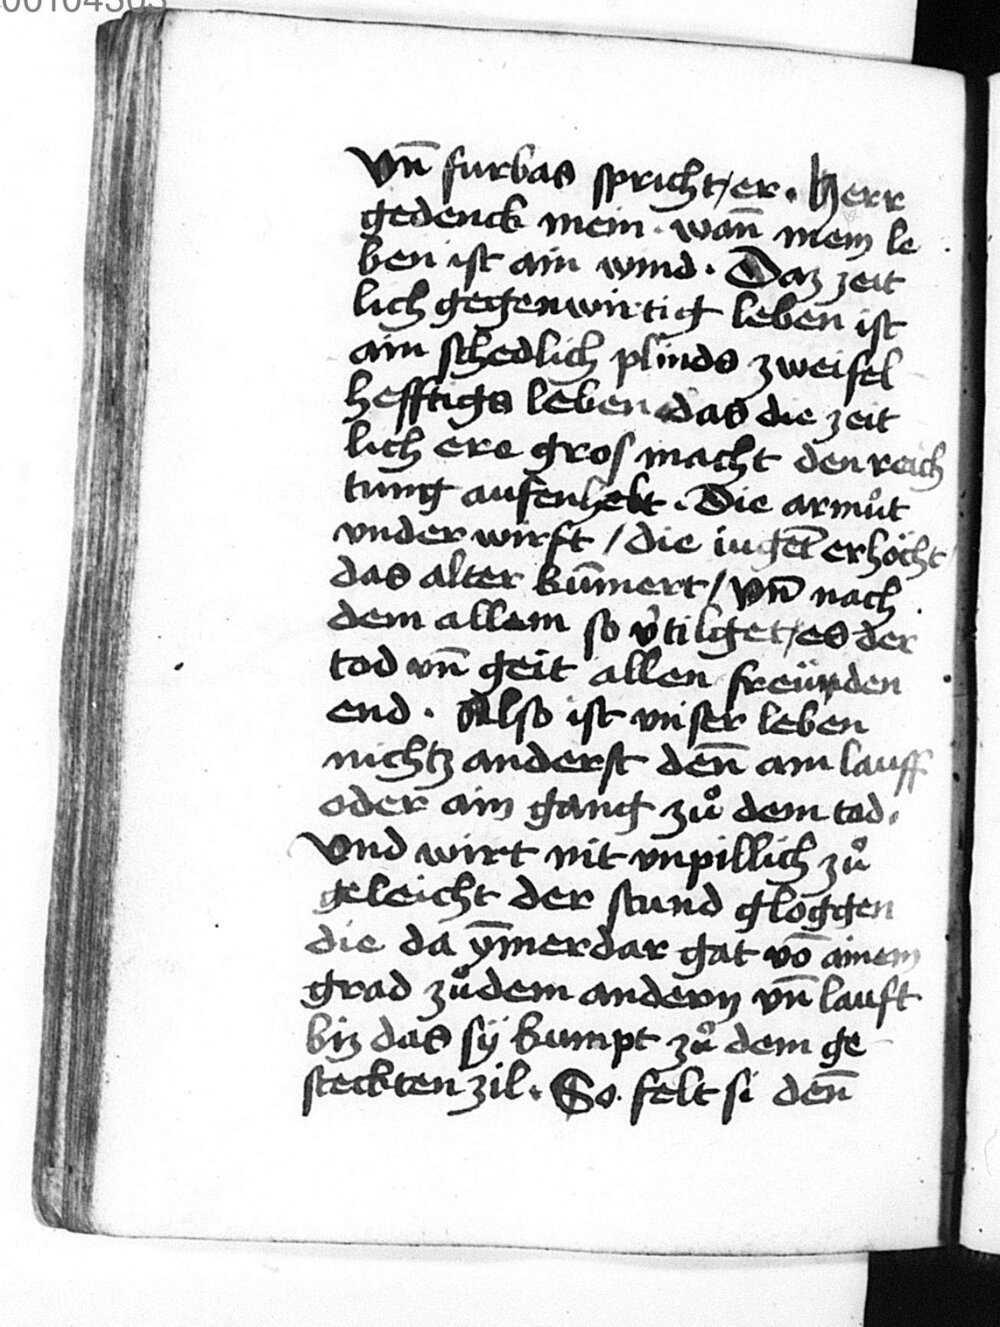 Vn̄ furbas spricht/er. Herr
gedenck mein. wan̄ mein le
ben ist ain wind. Daz zeit
lich gegenwirtig leben ist
ain schedlich plinds zweifel
hefftigs leben das die zeit
lich ere gros macht den reich
tung aufenhelt. Die armůt
vnder wirft / die iuget̄ erhöcht
das alter kūmert / vn̄ nach
dem allem so v̉tilget/es der
tod vn̄ geit allen freünden
end. Also ist vnser leben
nichtz anderst den̄ ain lauff
oder ain gang zů dem tod.
Vnd wirt nit vnpillich zů
geleicht der stund gloggen
die da ȳmerdar gat vō ainem
grad zůdem andern vn̄ lauft
biz das sÿ kumpt zů dem ge
steckten zil. So felt si den̄